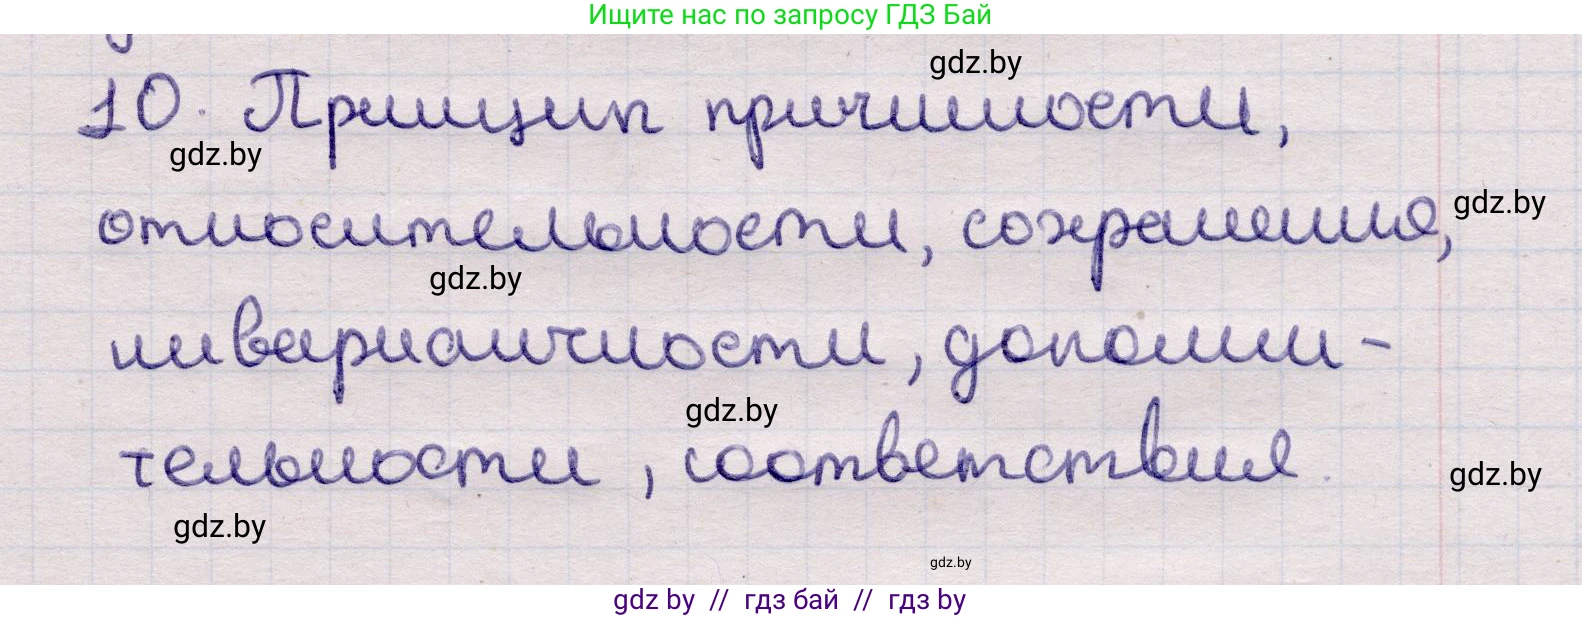 Ищите нас по запросу ГДЗ Бай
gdz.by
10. Принцип причинности,
gdz.by
относительности, сохранения,
gdz.by
gdz.by
инвариантности, дополни-
gdz.by
тельности, соответствия.
gdz.by
gdz.by
gdz.by
gdz by // гдз бай // гдз by